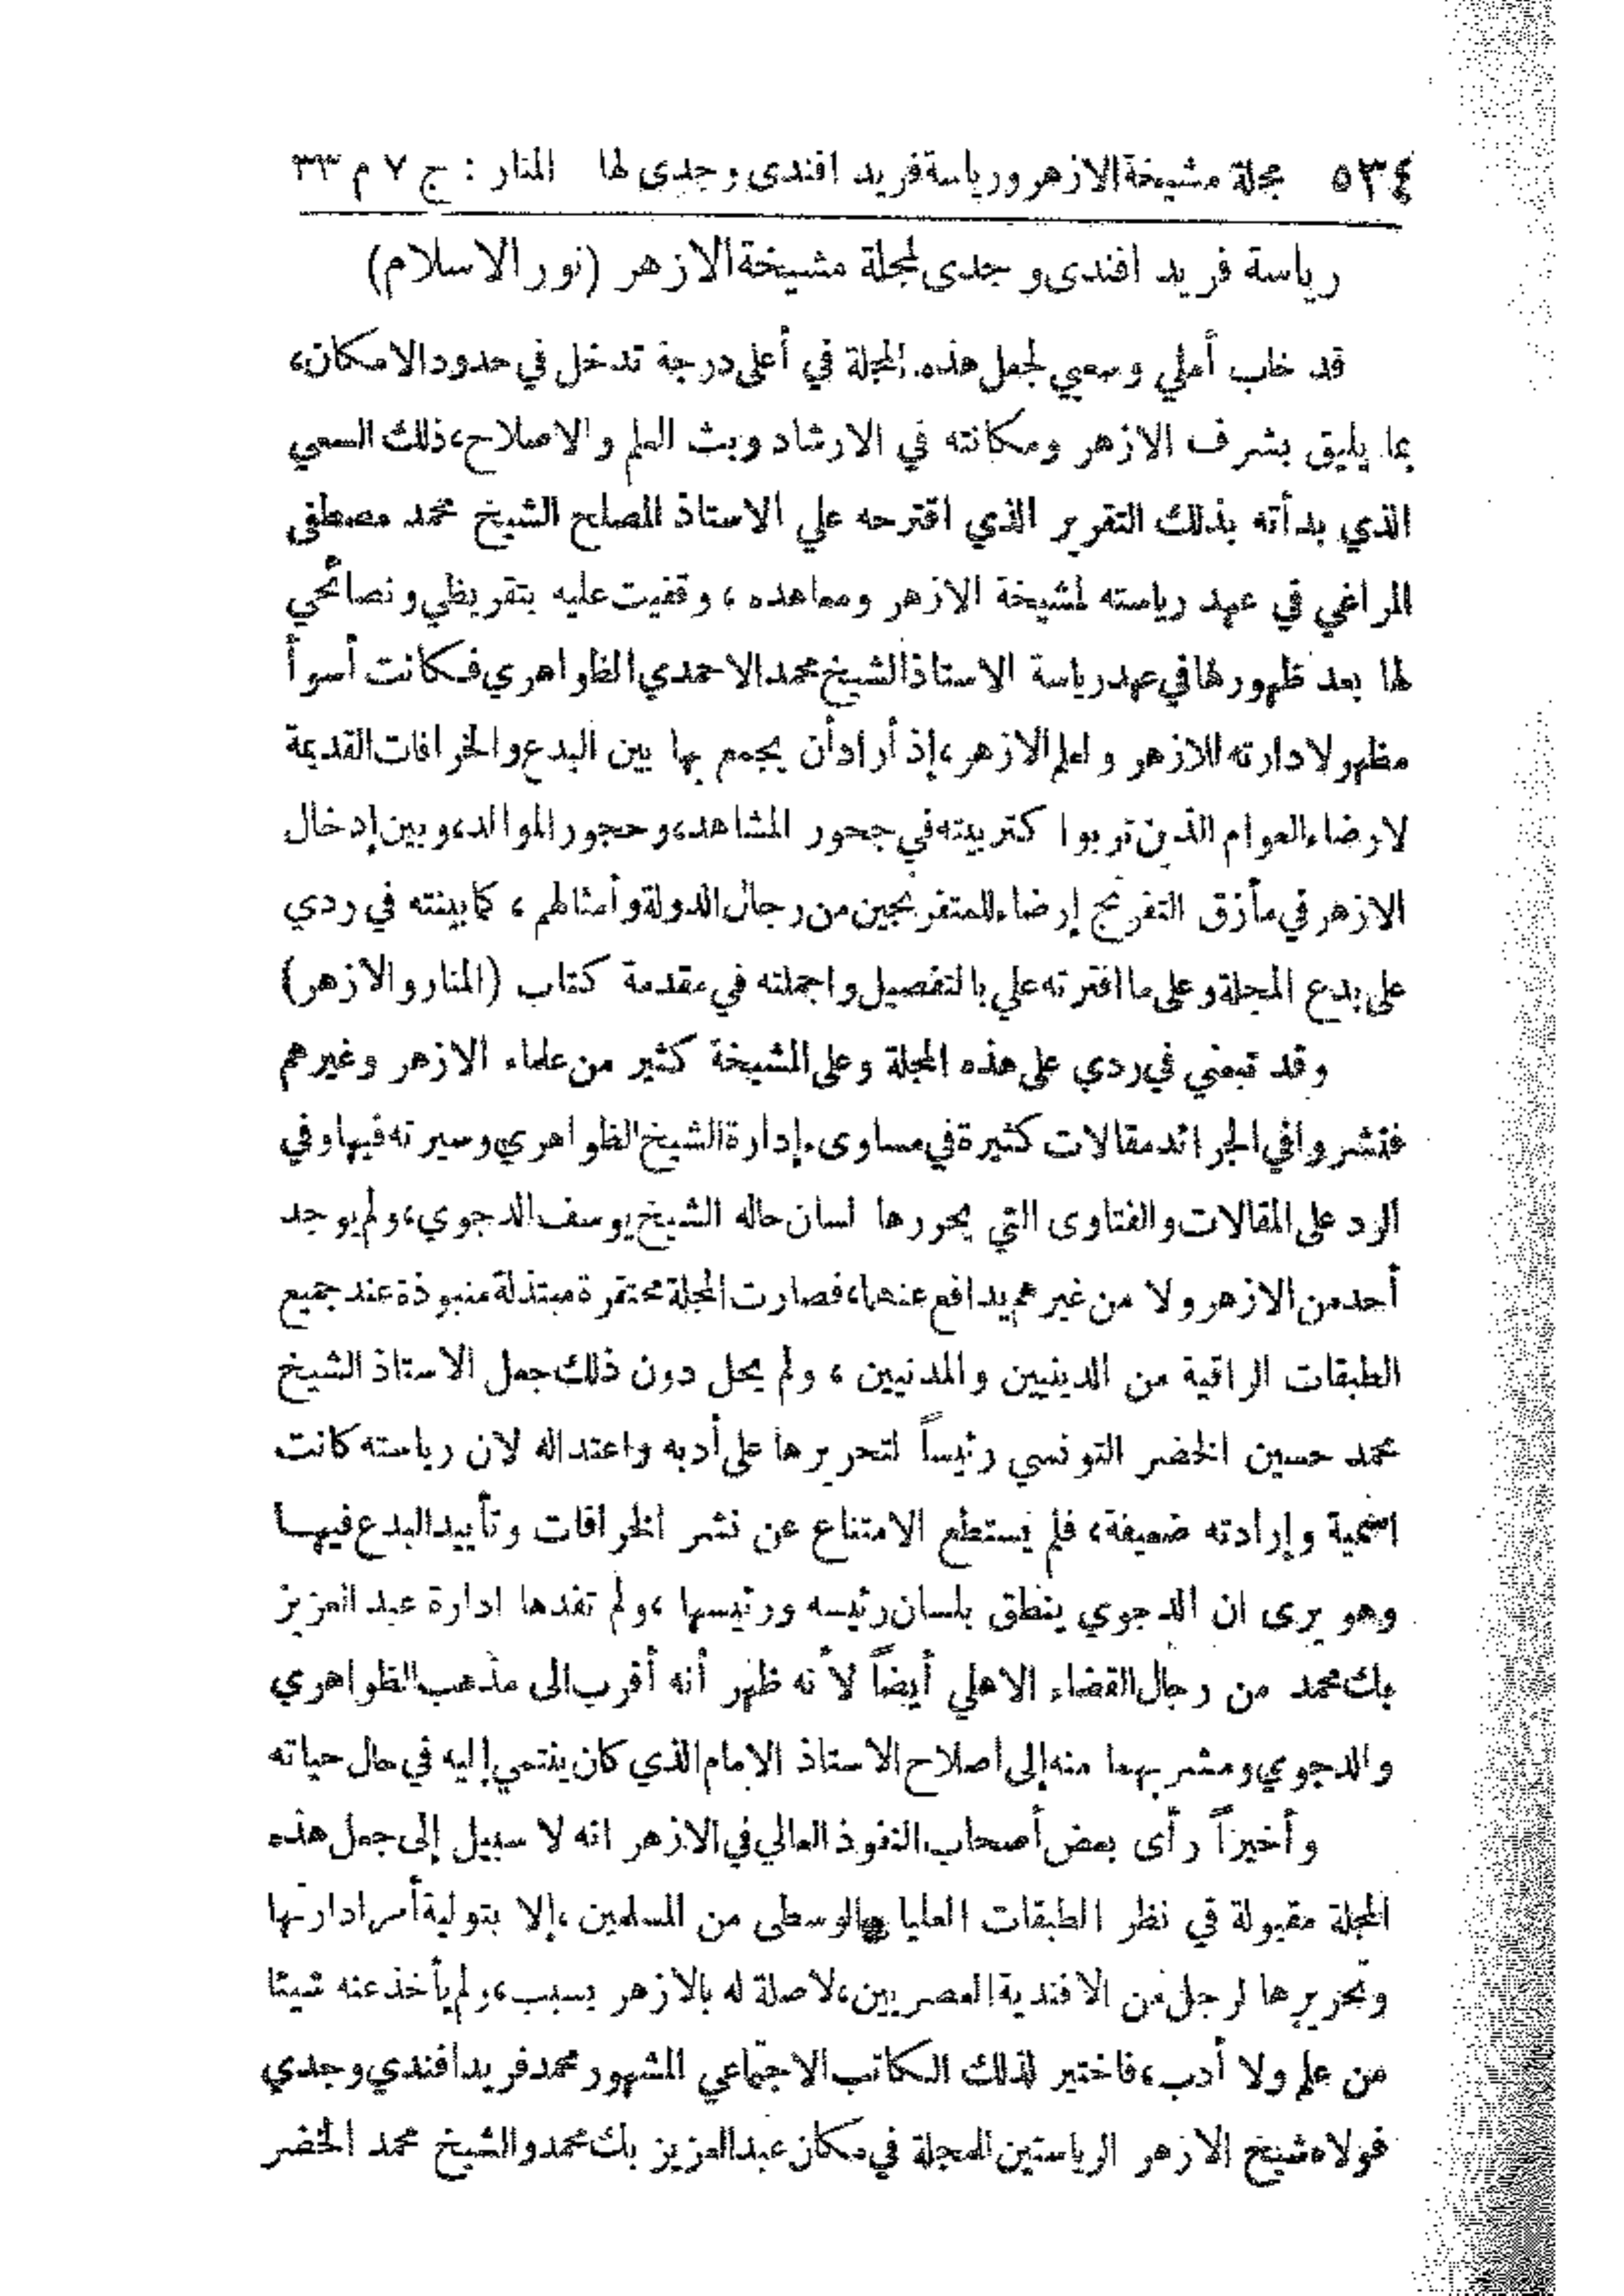 ٥٣٤ مجلة مشيخة الازهر ورياسة فريد افندى وجدى لها المنار : ج ٧ م ٣٣
رياسة فريد افندى وجدى لمجلة مشيخة الازهر (نور الاسلام)
قد خاب أملي وسعيي لجعل هذه المجلة في أعلى درجة تدخل في حدود الامكان،
بما يليق بشرف الازهر ومكانته في الارشاد وبث العلم والاصلاح، ذلك السعي
الذي بدأته بذلك التقرير الذي اقترحه علي الاستاذ المصلح الشيخ محمد مصطفى
المراغي في عهد رياسته لمشيخة الازهر ومعاهده ، وقفيت عليه بتقريظي ونصائحي
لها بعد ظهورها في عهد رياسة الاستاذ الشيخ محمد الاحمدي الظواهري فكانت أسوأ
مظهر لادارته للازهر ولعلم الازهر، إذ أراد أن يجمع بها بين البدع والخرافات القديمة
لارضاء العوام الذين تربوا كتربيته في جحور المشاهد، وحجور الموالد، وبين إدخال
الازهر في مأزق التفرنج إرضاء للمتفرنجين من رجال الدولة وأمثالهم ، كما بينته في ردي
على بدع المجلة وعلى ما افترته علي بالتفصيل واجملته في مقدمة كتاب (المنار والازهر)
وقد تبعني في ردي على هذه المجلة وعلى المشيخة كثير من علماء الازهر وغيرهم
فنشروا في الجرائد مقالات كثيرة في مساوىء إدارة الشيخ الظواهري وسيرته فيها وفي
الرد على المقالات والفتاوى التي يحررها لسان حاله الشيخ يوسف الدجوي، ولم يوجد
أحد من الازهر ولا من غيرهم يدافع عنهما، فصارت المجلة محتقرة مبتذلة منبوذة عند جميع
الطبقات الراقية من الدينيين والمدنيين ، ولم يحل دون ذلك جعل الاستاذ الشيخ
محمد حسين الخضر التونسي رئيساً لتحريرها على أدبه واعتداله لان رياسته كانت
اسمية وإرادته ضعيفة، فلم يستطع الامتناع عن نشر الخرافات وتأييد البدع فيهـا
وهو يرى ان الدجوي ينطق بلسان رئيسه ورئيسها ،ولم تفدها ادارة عبد العزيز
بك محمد من رجال القضاء الاهلي أيضاً لأنه ظهر أنه أقرب الى مذهب الظواهري
والدجوي ومشربهما منه إلى اصلاح الاستاذ الامام الذي كان ينتمي إليه في حال حياته
وأخيراً رأى بعض أصحاب النفوذ العالي في الازهر انه لا سبيل إلى جعل هذه
المجلة مقبولة في نظر الطبقات العليا والوسطى من المسلمين ،إلا بتولية أمر ادارتها
وتحريرها لرجل من الافندية العصريين، لاصلة له بالازهر بسبب، ولم يأخذ عنه شيئا
من علم ولا أدب، فاختير لذلك الكاتب الاجتماعي المشهور محمد فريد افندي وجدي
فولاه شيخ الازهر الرياستين للمجلة في مكان عبد العزيز بك محمد والشيخ محمد الخضر